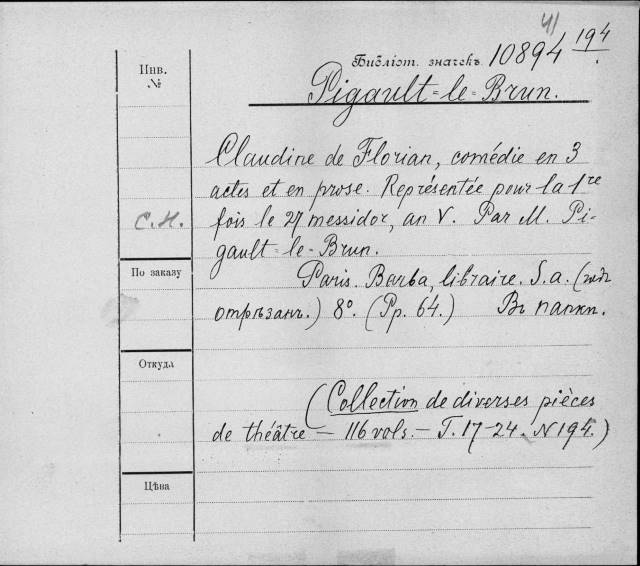 41
Библіот. значекъ 10894 194
Инв.
№
Pigault-le-Brun.
Claudine de Florian, comédie en 3
actes et en prose. Représentée pour la 1re
С.Н. fois le 27 messidor, an V. Par M. Pi-
gault-le-Brun.
По заказу
Paris. Barba, libraire. S.a. (годъ
отрѣзанъ.) 8º. (Pp. 64.) Въ папкѣ.
Откуда
(Collection de diverses pièces
de théâtre — 116 vols. — T. 17-24. N 194.)
Цѣна